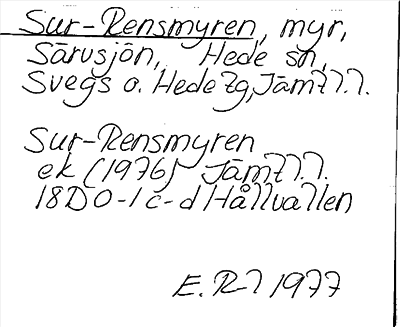 Sur-Rensmyren, myr,
Särvsjön, Hede sn,
Svegs o. Hede tg, Jämtl.l.
Sur-Rensmyren
ek (1976) Jämtl.l.
18D 0-1 c-d Hållvallen
E.Rl 1977